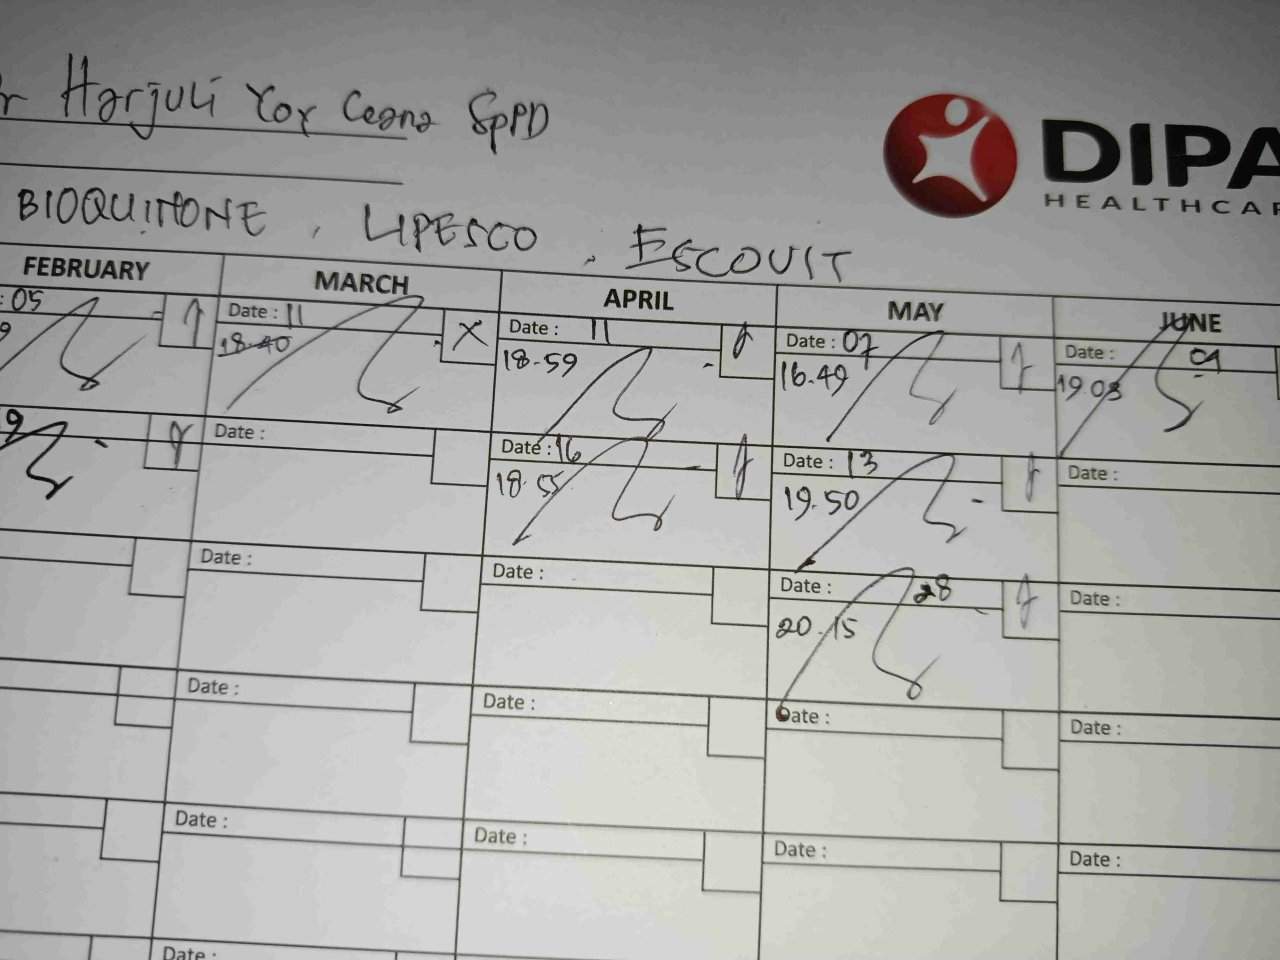 Harjuli Yox Ceana SpPD
DIPA
HEALTHCAR
BIOQUINONE, LIPESCO, ESCOVIT
FEBRUARY MARCH APRIL MAY JUNE
: 05 Date : 11 Date : 11 Date : 07 Date : 09
18-40 18-59 16.49 19 03
Date : Date : 16 Date : 13 Date :
18-55 19.50
Date : Date : Date : 28 Date :
20.15
Date : Date : Date : Date :
Date : Date : Date : Date :
Date :